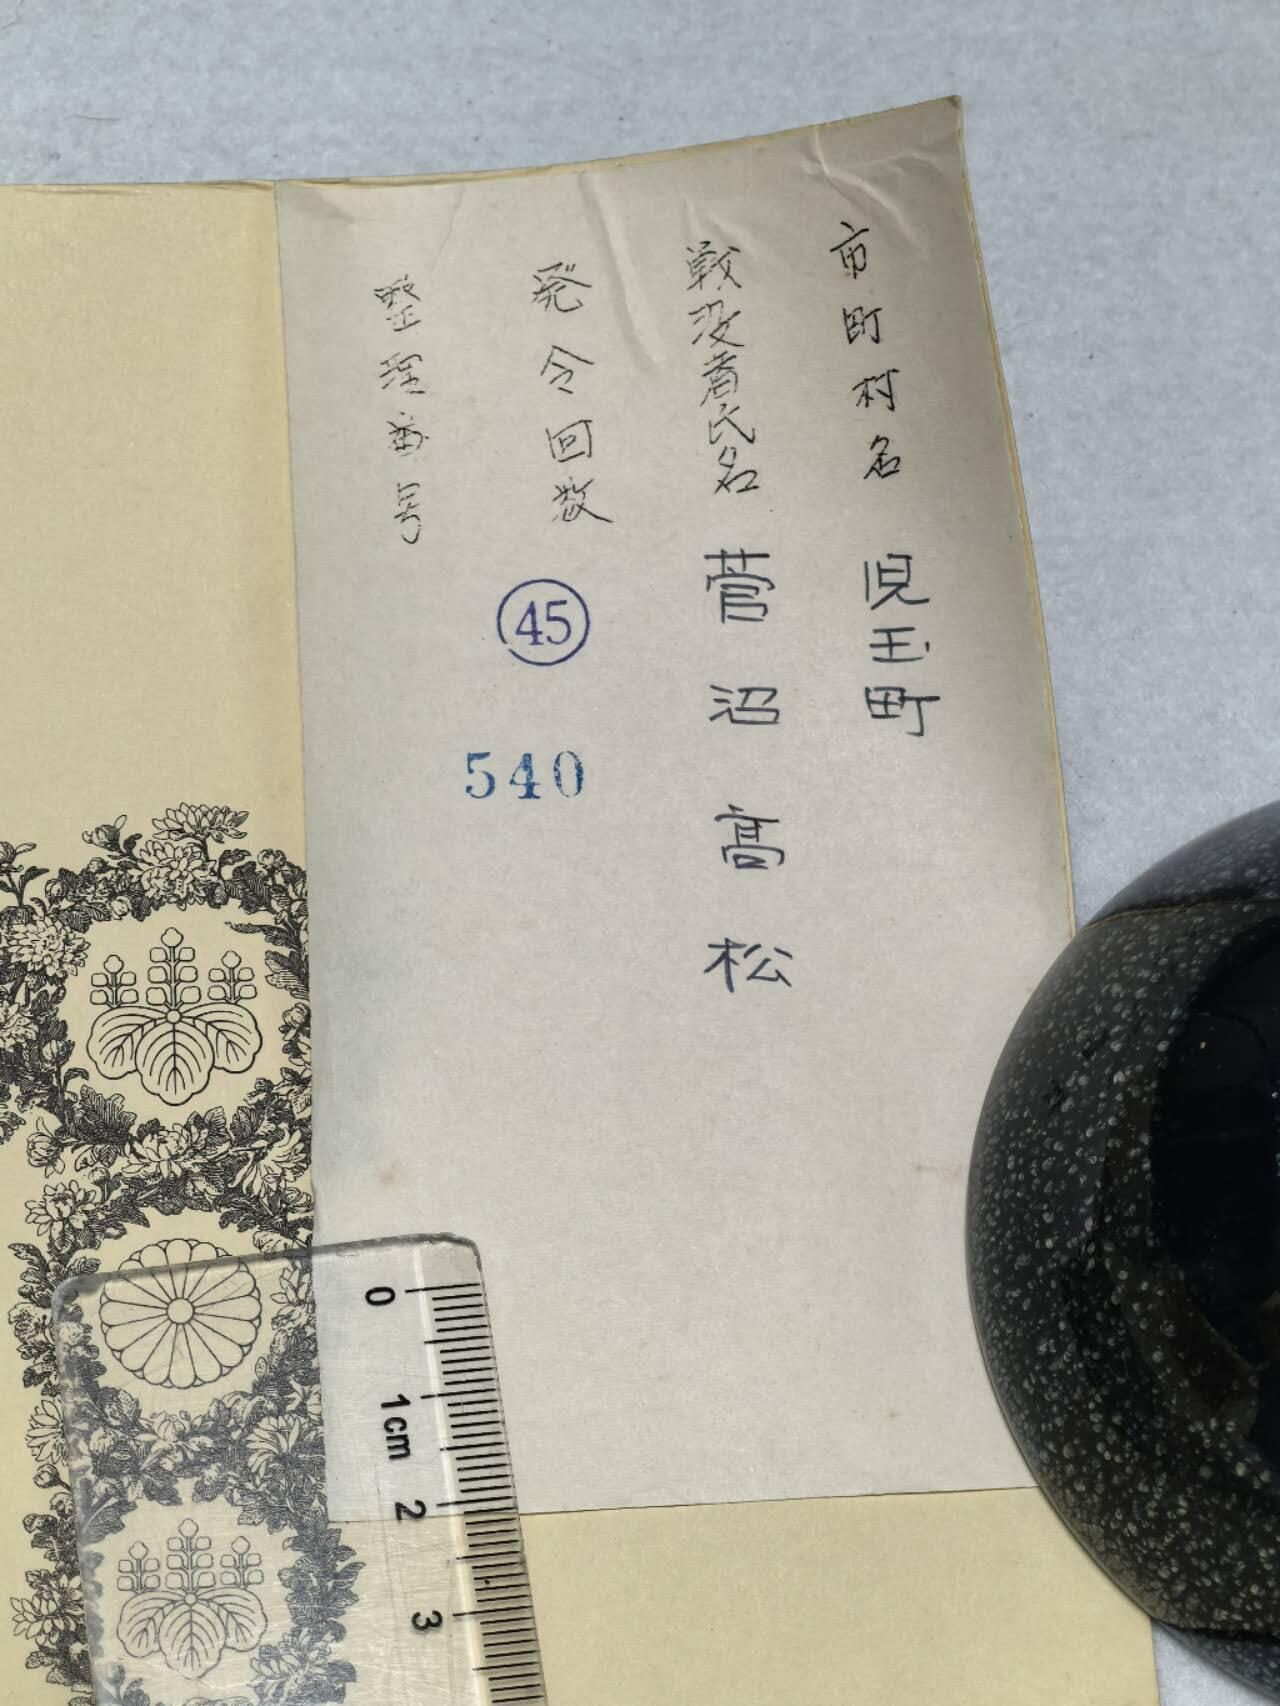 市町村名 児玉町
戦没者氏名 菅沼高松
発令回数 ㊺
整理番号 540
0
1cm
2
3